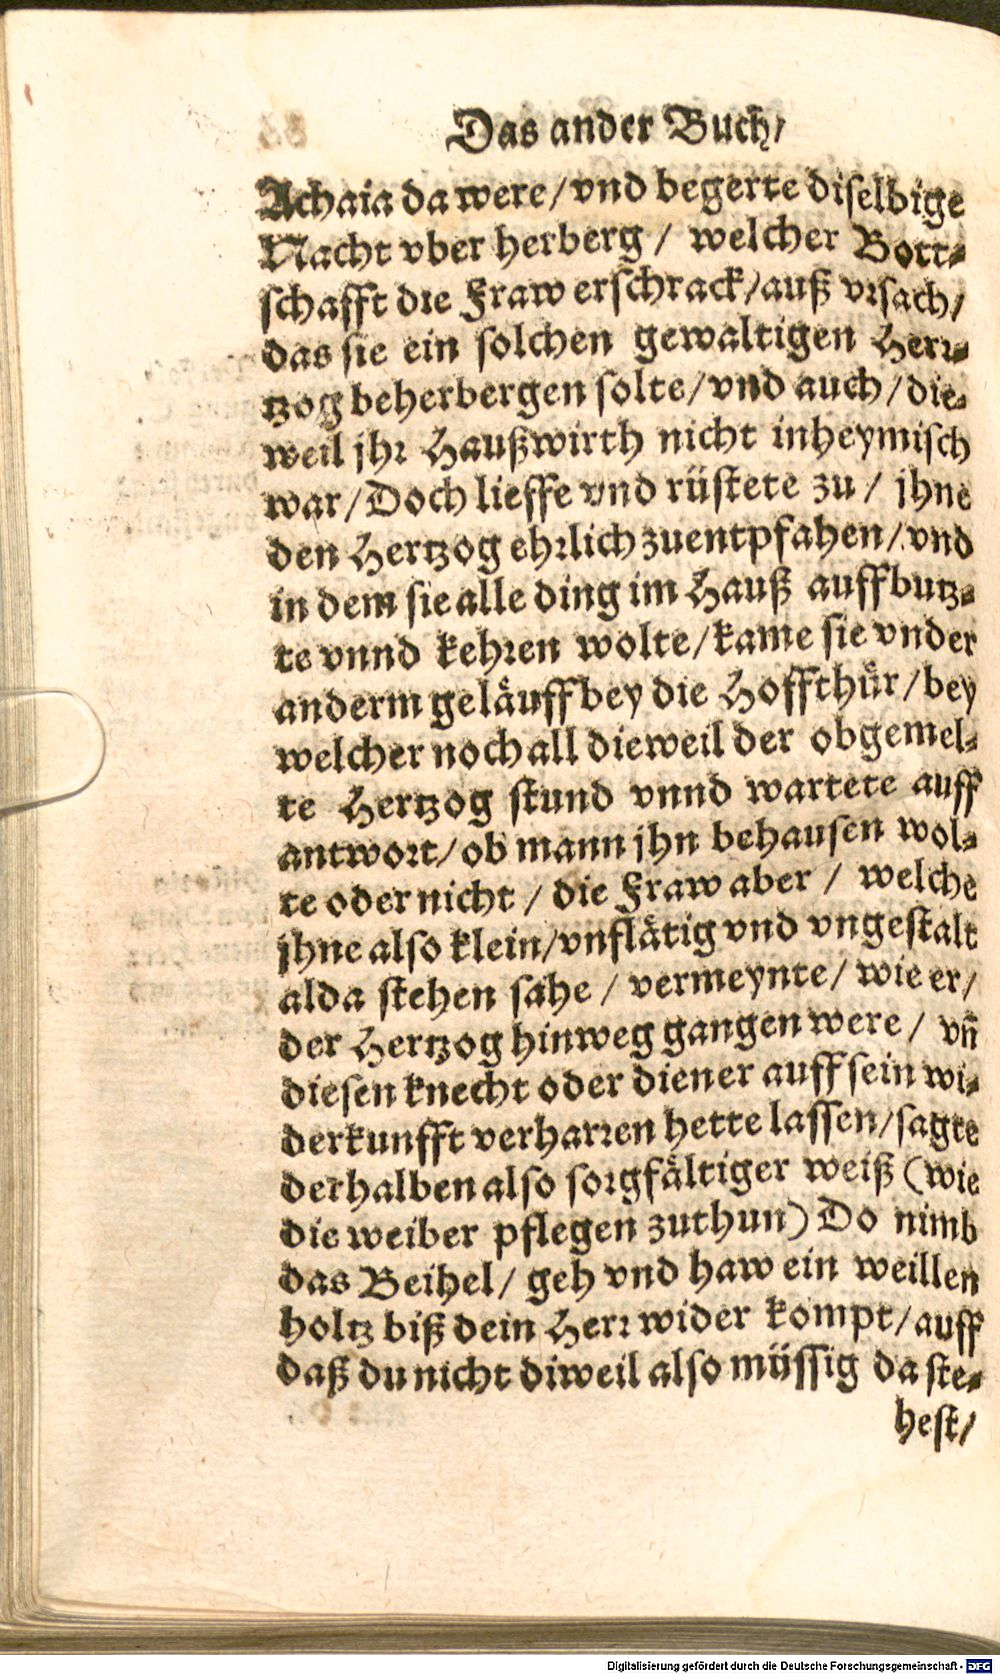 Das ander Buch/
Achaia da were/vnd begerte diselbige
Nacht vber herberg / welcher Bott-
schafft die Fraw erschrack/auß vrsach/
das sie ein solchen gewaltigen Herr-
tzog beherbergen solte/vnd auch/die-
weil jhr Haußwirth nicht inheymisch
war/Doch lieffe vnd rüstete zu / jhne
den Hertzog ehrlich zuentpfahen/vnd
in dem sie alle ding im Hauß auffbutz-
te vnnd kehren wolte/kame sie vnder
anderm geläuff bey die Hoffthür/bey
welcher noch all dieweil der obgemel-
te Hertzog stund vnnd wartete auff
antwort/ob mann jhn behausen wol-
te oder nicht / die Fraw aber / welche
jhne also klein/vnflätig vnd vngestalt
alda stehen sahe / vermeynte/ wie er/
der Hertzog hinweg gangen were / vñ
diesen knecht oder diener auff sein wi-
derkunfft verharren hette lassen/sagte
derhalben also sorgfältiger weiß (wie
die weiber pflegen zuthun) Do nimb
das Beihel/ geh vnd haw ein weillen
holtz biß dein Herr wider kompt/auff
daß du nicht diweil also müssig da ste-
hest/
Digitalisierung gefördert durch die Deutsche Forschungsgemeinschaft - DFG